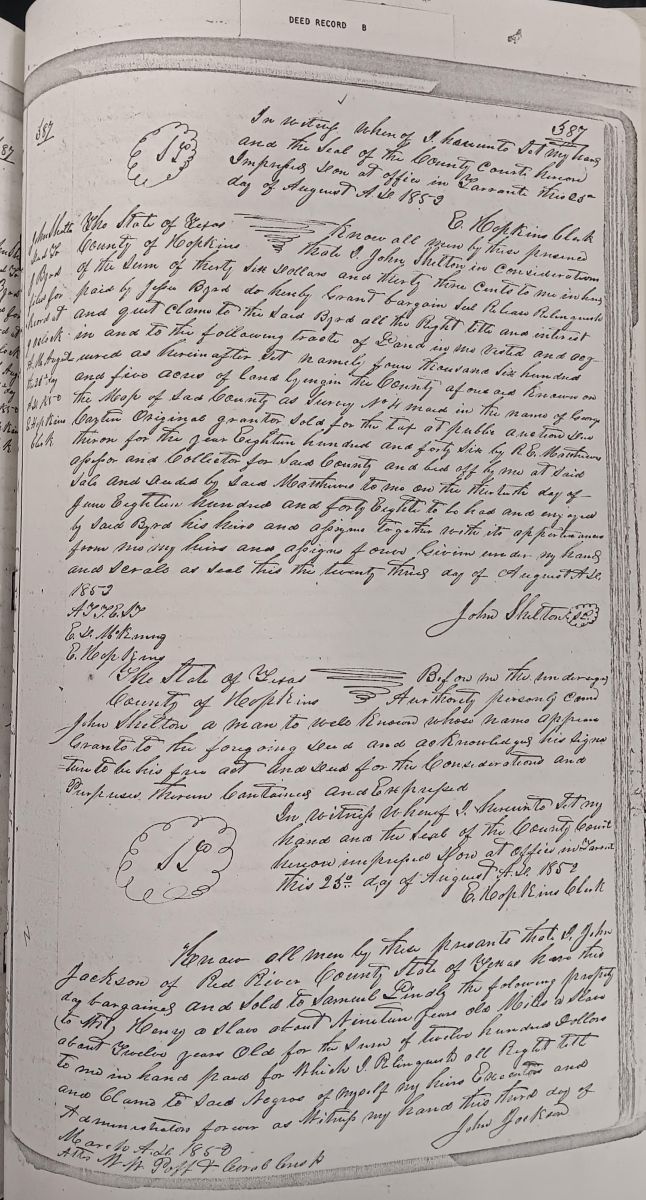 DEED RECORD B
387
387
In witness whereof I hereunto Set my hand
and the Seal of the County Court hereon
Impressed Done at office in Tarrant this 23
day of August A.D. 1850
E. Hopkins Clerk
The State of Texas Know all men by these presents
County of Hopkins that I John Shelton in consideration
of the Sum of thirty Six Dollars and thirty three Cents to me in hand
paid by Jesse Byrd do hereby Grant bargain Sell Release Relinquish
and quit claim to the Said Byrd all the Right title and interest
in and to the following tracts of Land in me vested and acq
uired as hereinafter Set namely four thousand Six hundred
and five acres of land lying in the County aforesaid Known on
the Map of Said County as Survey No 4 made in the name of George
Original grantor Sold for the tax at public auction due
thereon for the year Eighteen hundred and forty Six by R.E. Matthews
assessor and Collector for Said County and bid off by me at Said
Sale and Deeded by Said Matthews to me on the day of
June Eighteen hundred and forty Eight to be had and enjoyed
by Said Byrd his heirs and assigns together with its appertinances
from me my heirs and assigns forever Given under my hand
and Scrole as Seal this the twenty third day of August A.D.
1850
John Shelton
ATTEST
E.D. McKinney
E. Hopkins
The State of Texas Before me the undersigned
County of Hopkins Authority personly came
John Shelton a man to well Known whose name appears
Grantor to the foregoing deed and acknowledged his Signa
ture to be his free act and deed for the Considerations and
Purposes therein Contained and Expressed
In Witness Whereof I hereunto Set my
hand and the Seal of the County Court
hereon impressed Done at Office in Tarrant
this 23d day of August A.D. 1850
E. Hopkins Clerk
Know all men by these presants that I John
Jackson of Red River County State of Texas have this
day bargained and Sold to Samuel Lindly the following property
(to Wit) Henry a Slave about Nineteen years old Mills a Slave
about Twelve years Old for the Sum of twelve hundred Dollars
to me in hand paid for Which I Relinquish all Right title
and Claim to Said Negroes of myself my heirs Executors and
Administrators forever as Witness my hand this third day of
March A.D. 1850 John Jackson
Attest